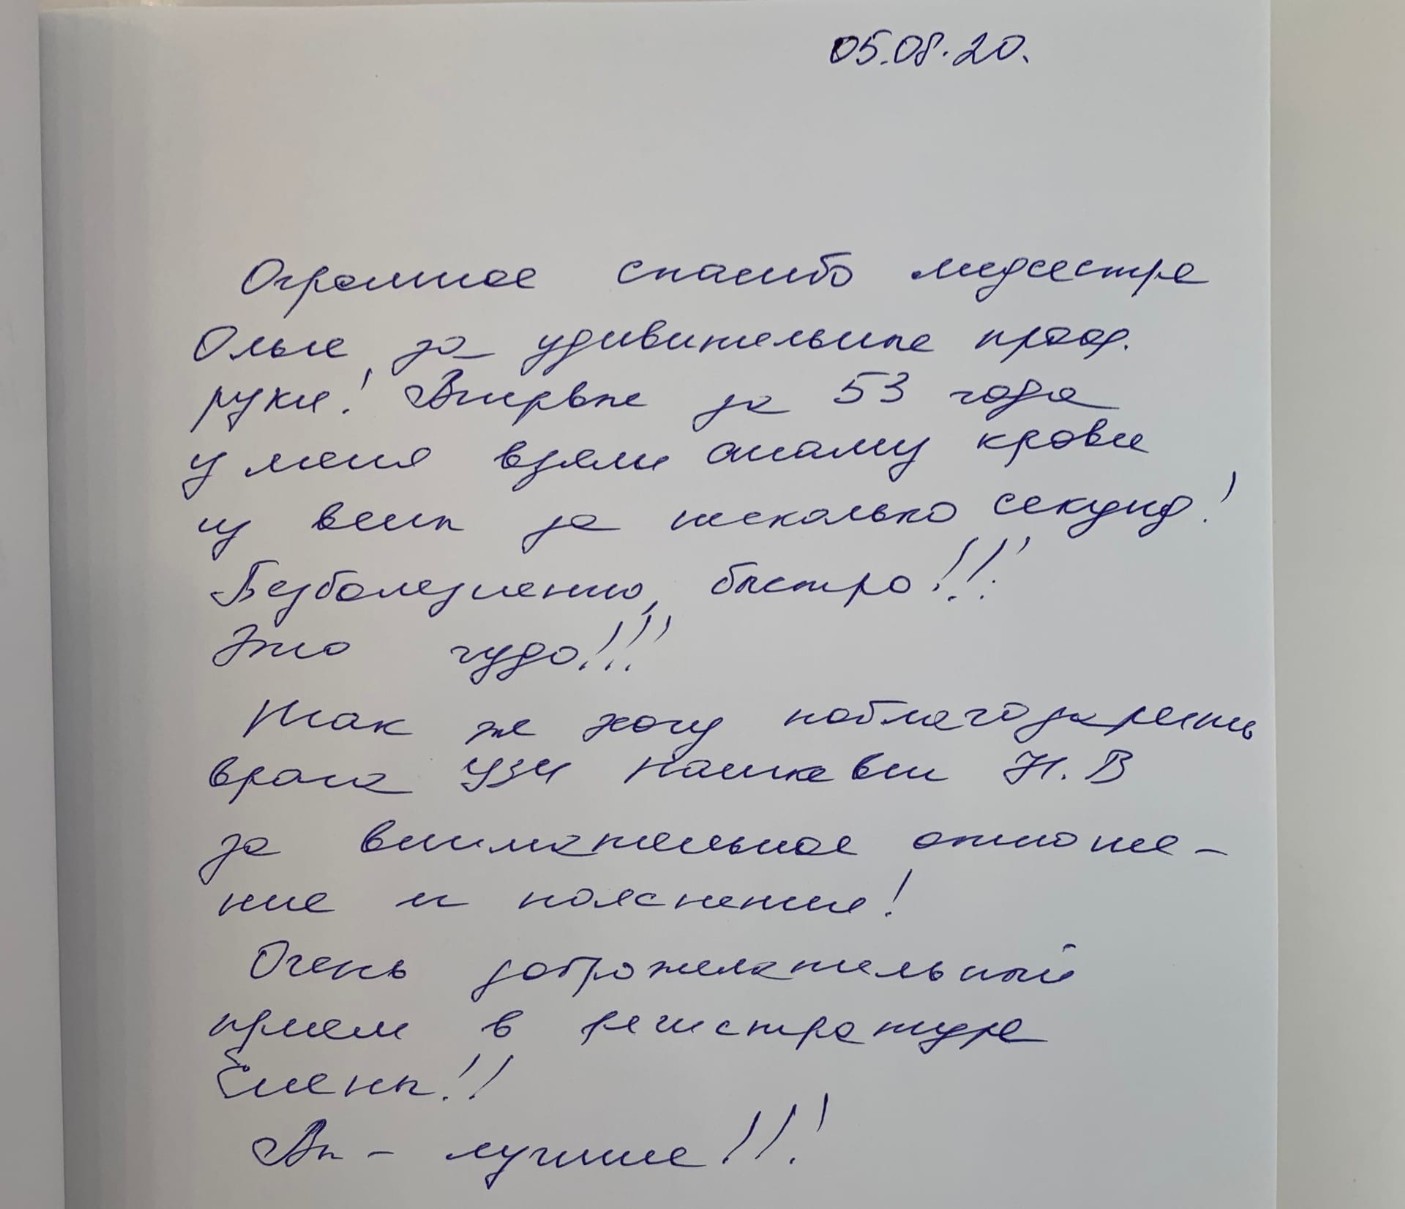 05.08.20.
Огромное спасибо медсестре
Ольге за удивительные
руки! Впервые за 53 года
у меня взяли анализ крови
из вены за несколько секунд!
Безболезненно, быстро!!!
Это чудо!!!
Так же хочу поблагодарить
врача УЗИ Н.В
за внимательное отноше-
ние и пояснения!
Очень доброжелательный
прием в регистратуре
Елены!!
Вы - лучшие!!!